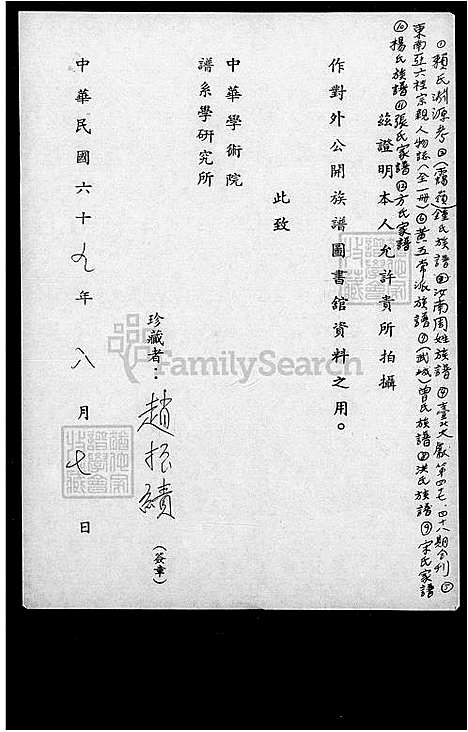 ①賴氏淵源考②(靄嶺)鍾氏族譜③汝南周姓族譜④臺北文獻第四七、四八期合刊⑤
東南亞六桂宗親人物誌(全一冊)⑥黃五常派族譜⑦(武城)曾氏族譜⑧洪氏族譜⑨宋氏家譜
⑩楊氏族譜⑪張氏家譜⑫方氏家譜
茲證明本人允許貴所拍攝
作對外公開族譜圖書館資料之用。
此致
中華學術院
譜系學研究所
珍藏者：趙振績(簽章)
中華民國六十九年八月七日
FamilySearch